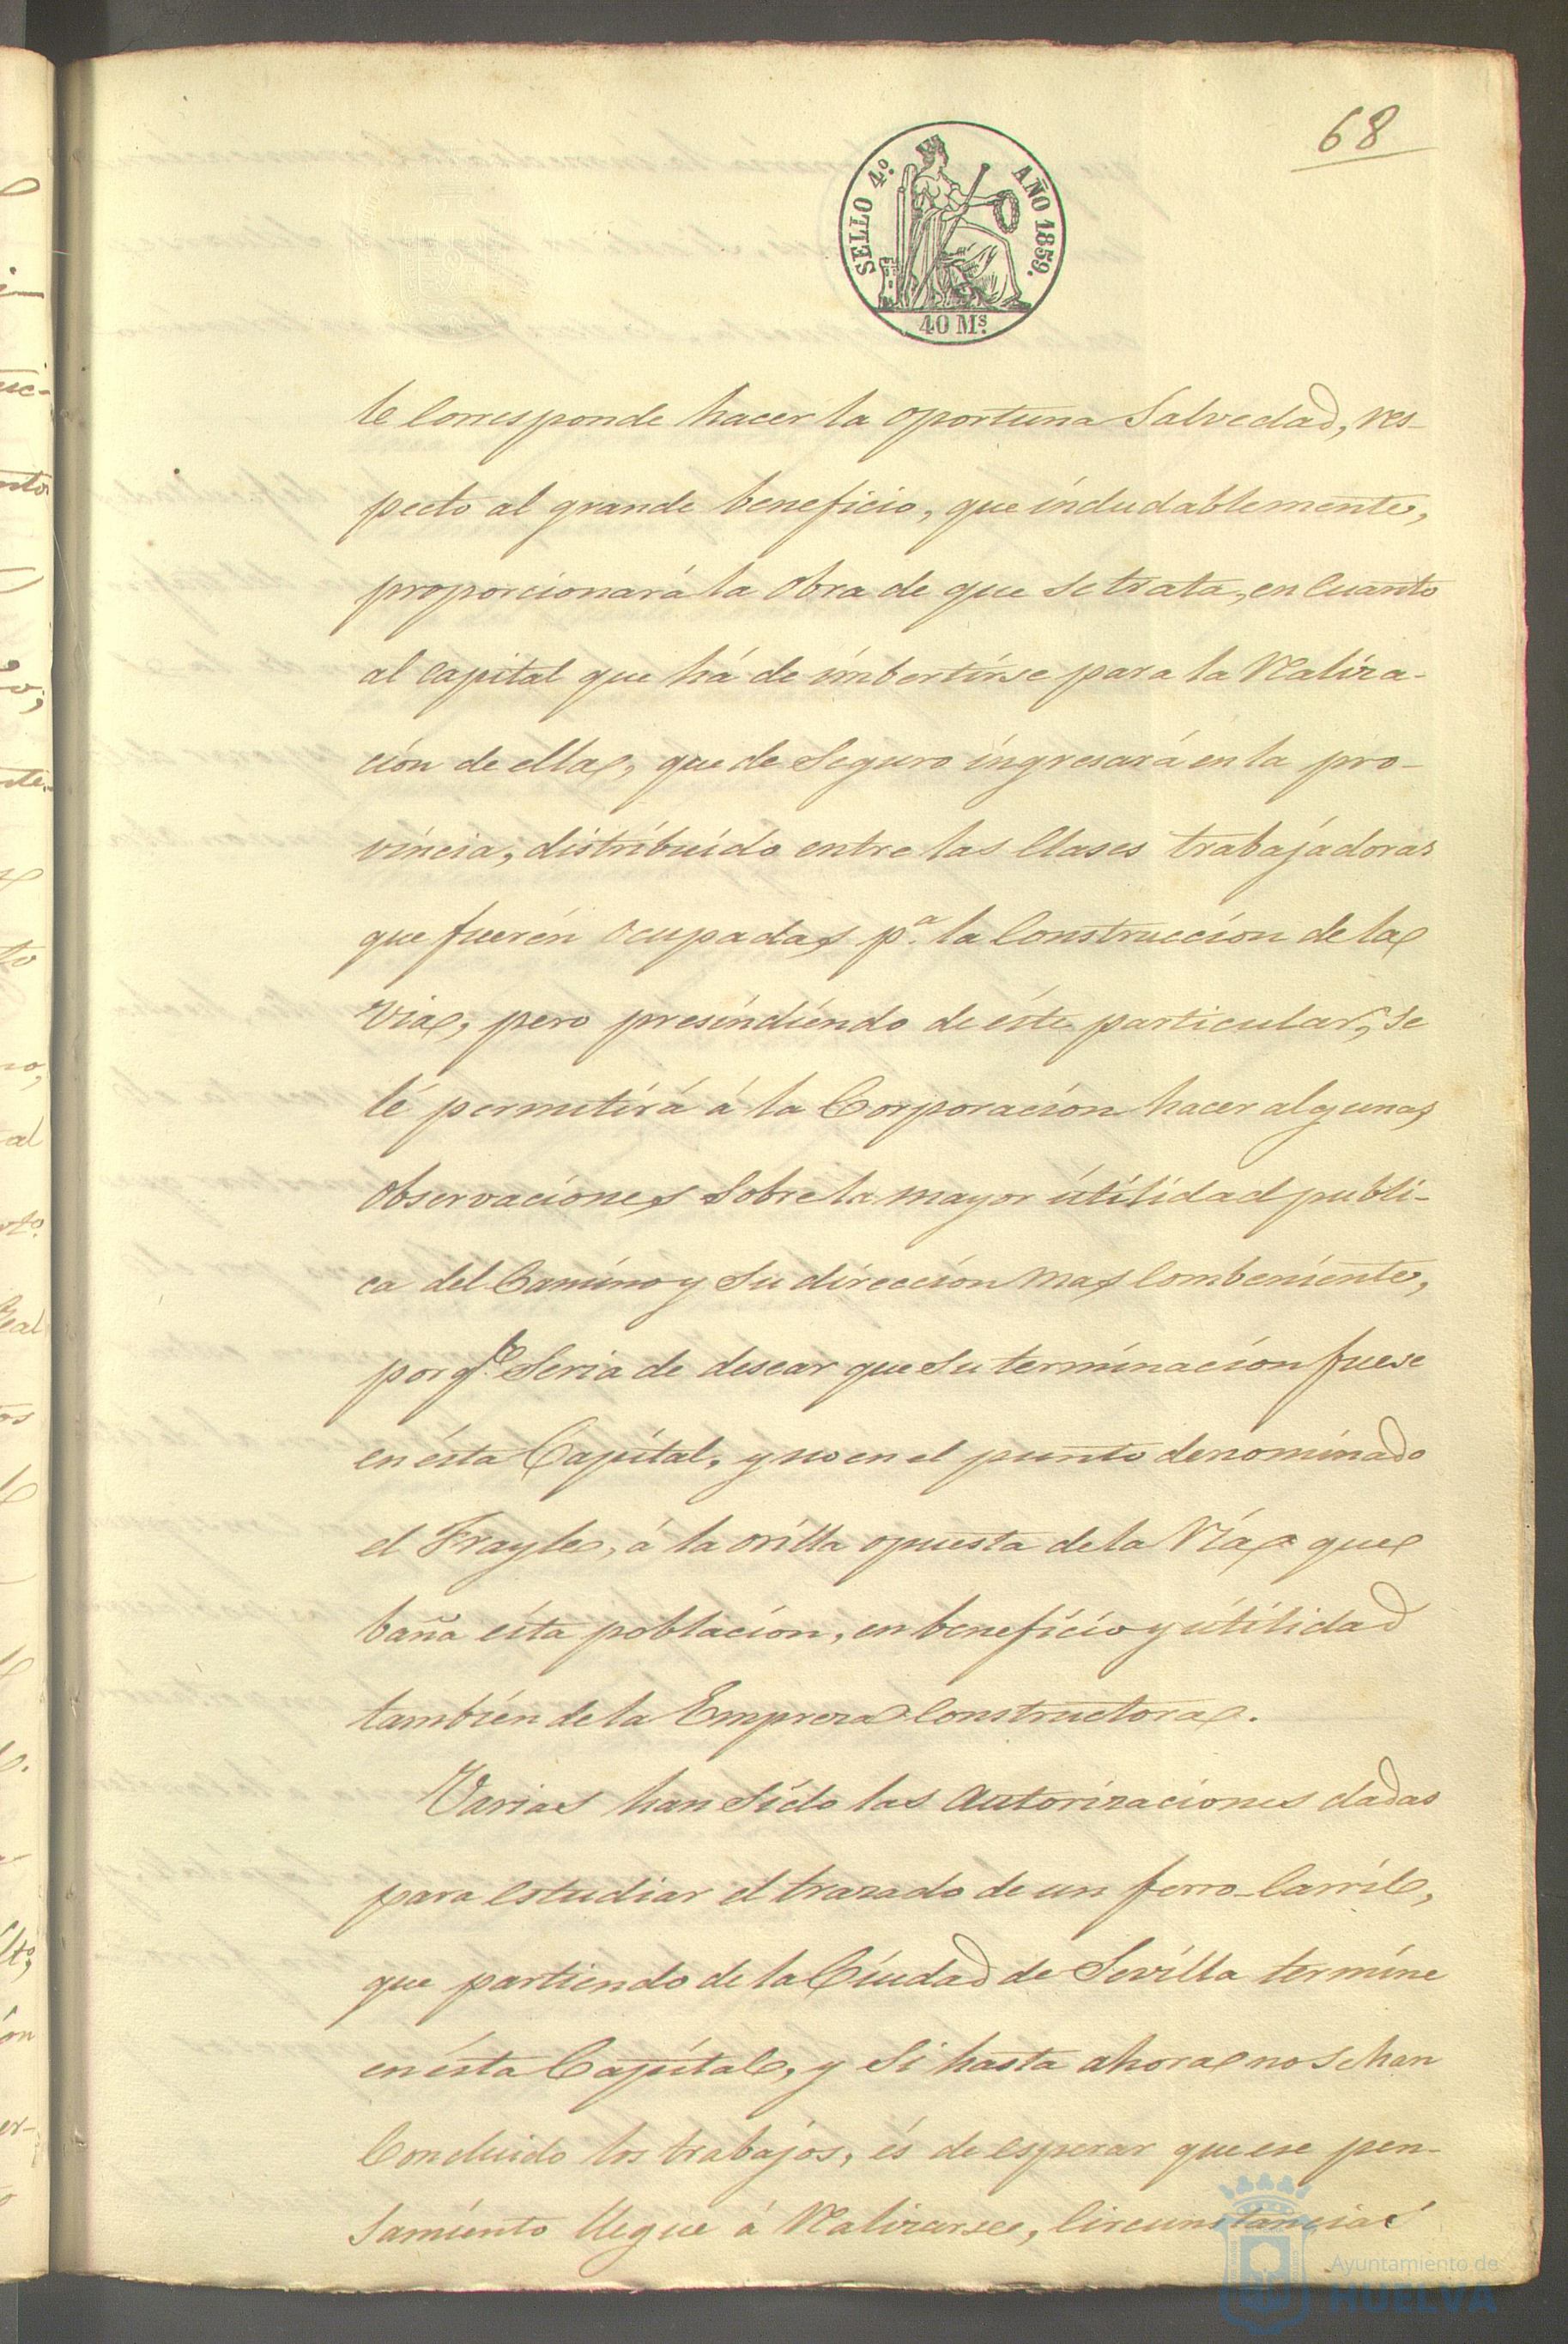 68
SELLO 4.º AÑO 1859.
40 Ms.
le corresponde hacer la oportuna Salvedad, res-
pecto al grande beneficio, que indudablemente,
proporcionará la obra de que se trata, en cuanto
al capital que há de imbertirse para la Realiza-
ción de ella, que de Seguro ingresará en la pro-
vincia, distribuido entre las Clases trabajadoras
que fuerén ocupadas pª. la Construcción de la
Via, pero presindiendo de éste particular, se
lé permitirá á la Corporación hacer algunas
observaciones Sobre la mayor útilidad publi-
ca del Camino y Su dirección mas Combeniente,
por qe. Seria de desear que Su terminación fuese
en ésta Capital, y no en el punto denominado
el Frayle, á la orilla opuesta de la Ría que
baña ésta población, en beneficio y útilidad
también de la Empreza Constructora.
Varias han Sido las Autorizaciones dadas
para estudiar el trazado de un ferro-Carril,
que partiendo de la Ciudad de Sevilla termine
en ésta Capital, y Si hasta ahora no se han
Concluido los trabajos, és de esperar que ese pen-
samiento llegue á Realizarse, Circunstancias
Ayuntamiento de
HUELVA